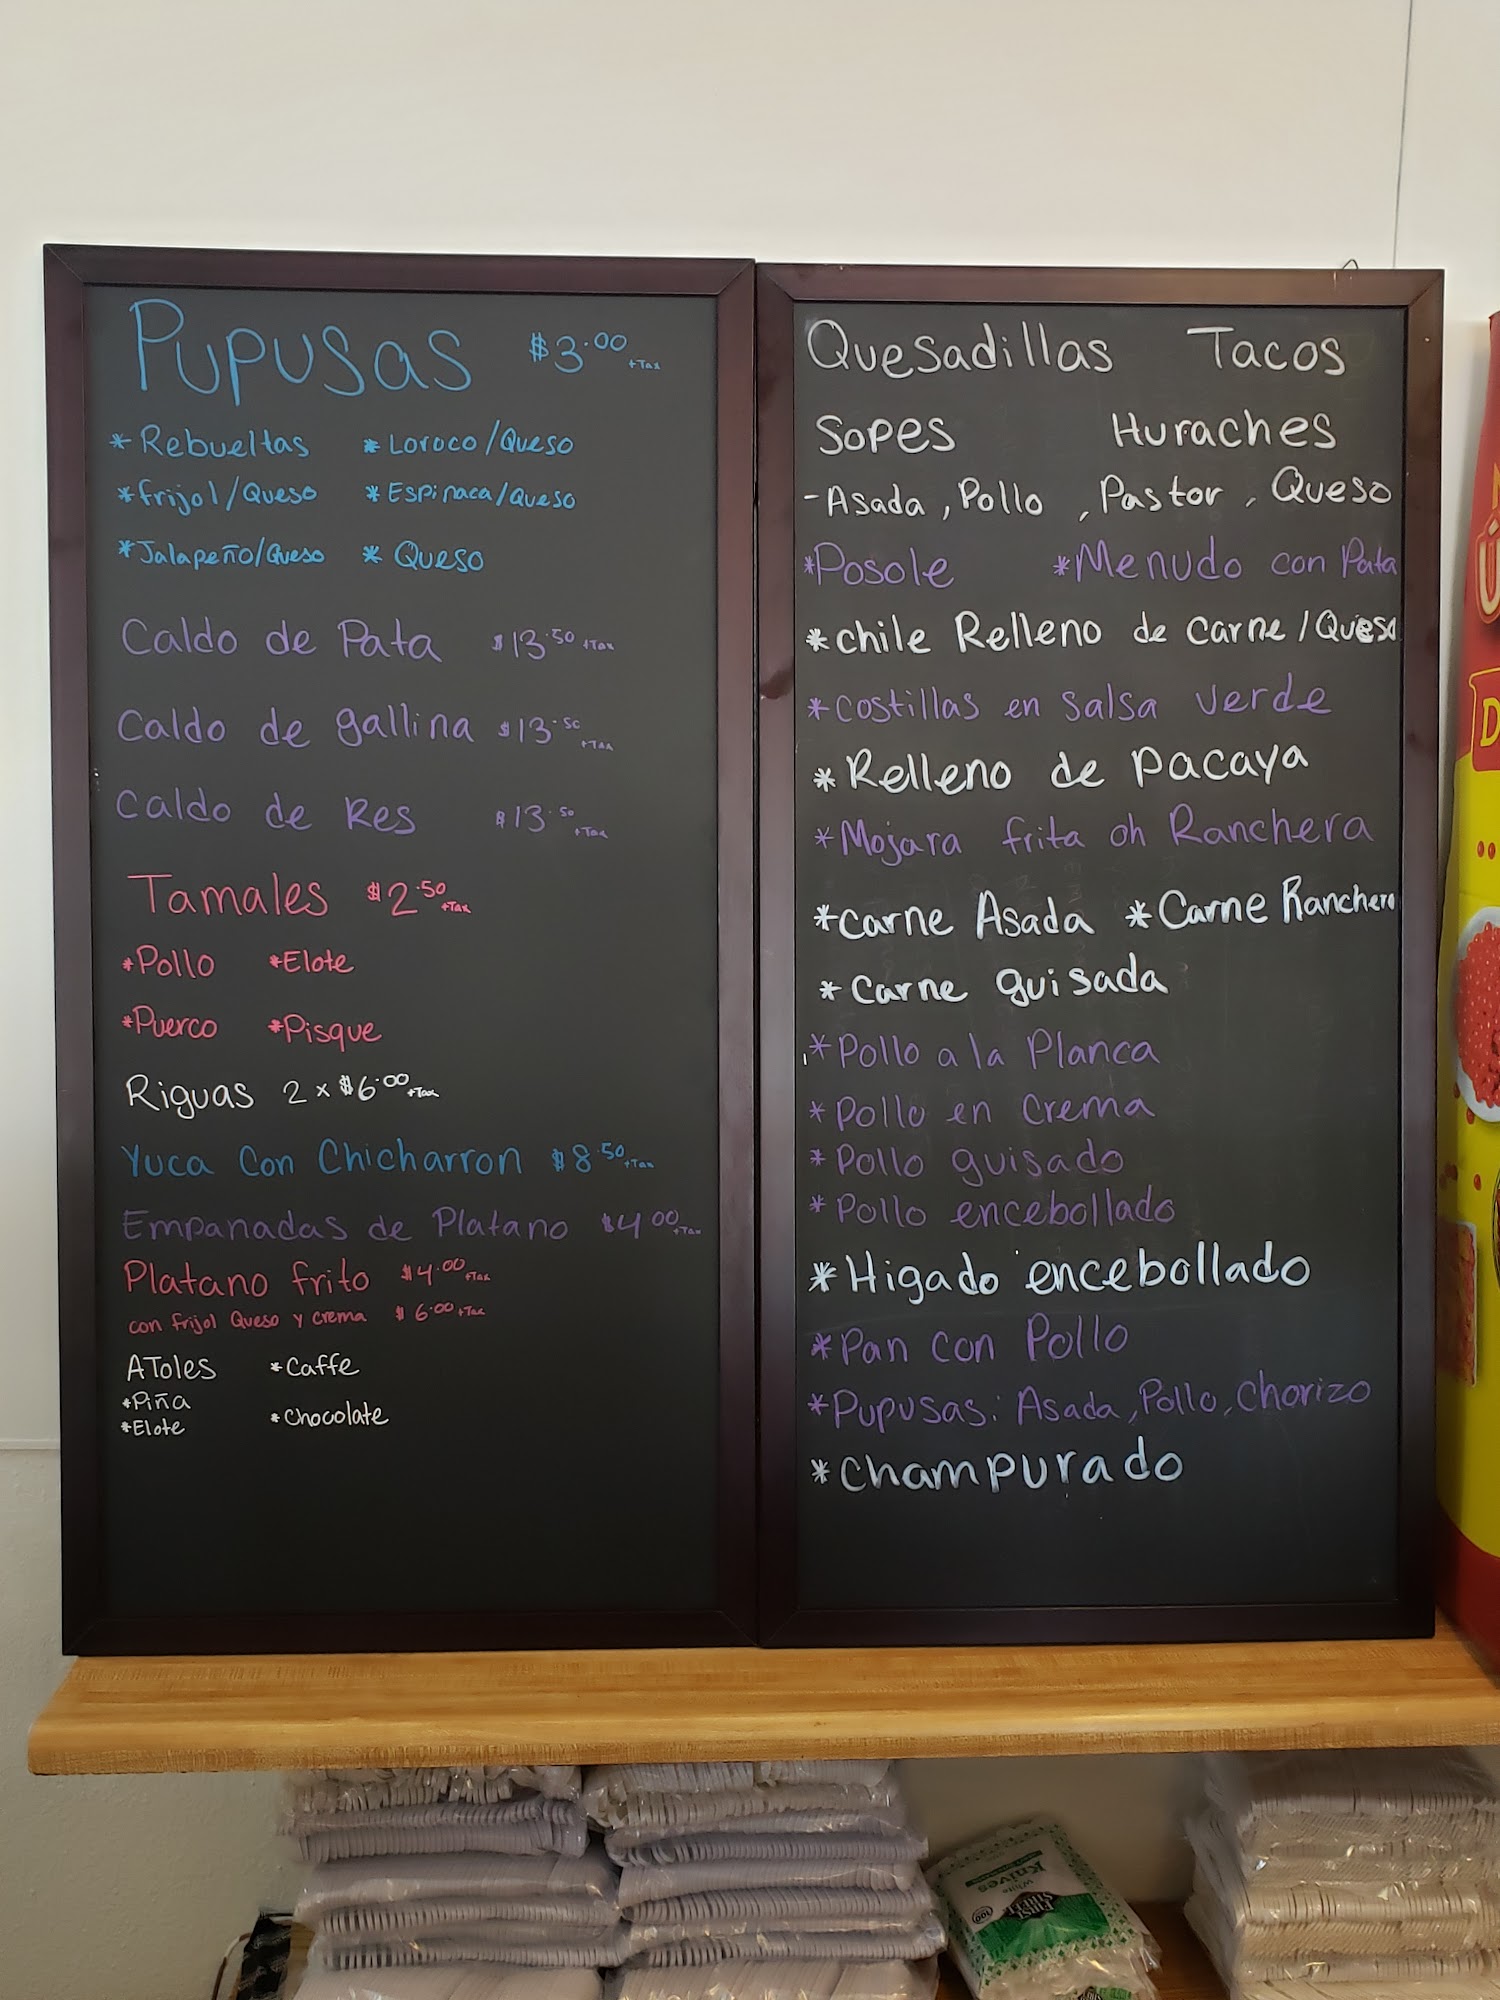 Pupusas $3.00 +Tax
*Rebueltas *Loroco/Queso
*frijol/Queso *Espinaca/Queso
*Jalapeño/Queso * Queso
Caldo de Pata $13.50 +Tax
Caldo de gallina $13.50 +Tax
Caldo de Res $13.50 +Tax
Tamales $2.50 +Tax
*Pollo *Elote
*Puerco *Pisque
Riguas 2 x $6.00 +Tax
Yuca Con Chicharron $8.50 +Tax
Empanadas de Platano $4.00 +Tax
Platano frito $4.00 +Tax
con frijol Queso y crema $6.00 +Tax
AToles *Caffe
*Piña
*Elote *Chocolate
Quesadillas Tacos
Sopes Huraches
-Asada, Pollo, Pastor, Queso
*Posole *Menudo con Pata
*chile Relleno de carne/Queso
*costillas en salsa verde
*Relleno de pacaya
*Mojara frita oh Ranchera
*carne Asada *Carne Ranchera
*carne guisada
*Pollo a la Planca
*Pollo en Crema
*Pollo guisado
*Pollo encebollado
*Higado encebollado
*Pan con Pollo
*Pupusas: Asada, Pollo, Chorizo
*champurado
White
Knives
FIRST STREET
100